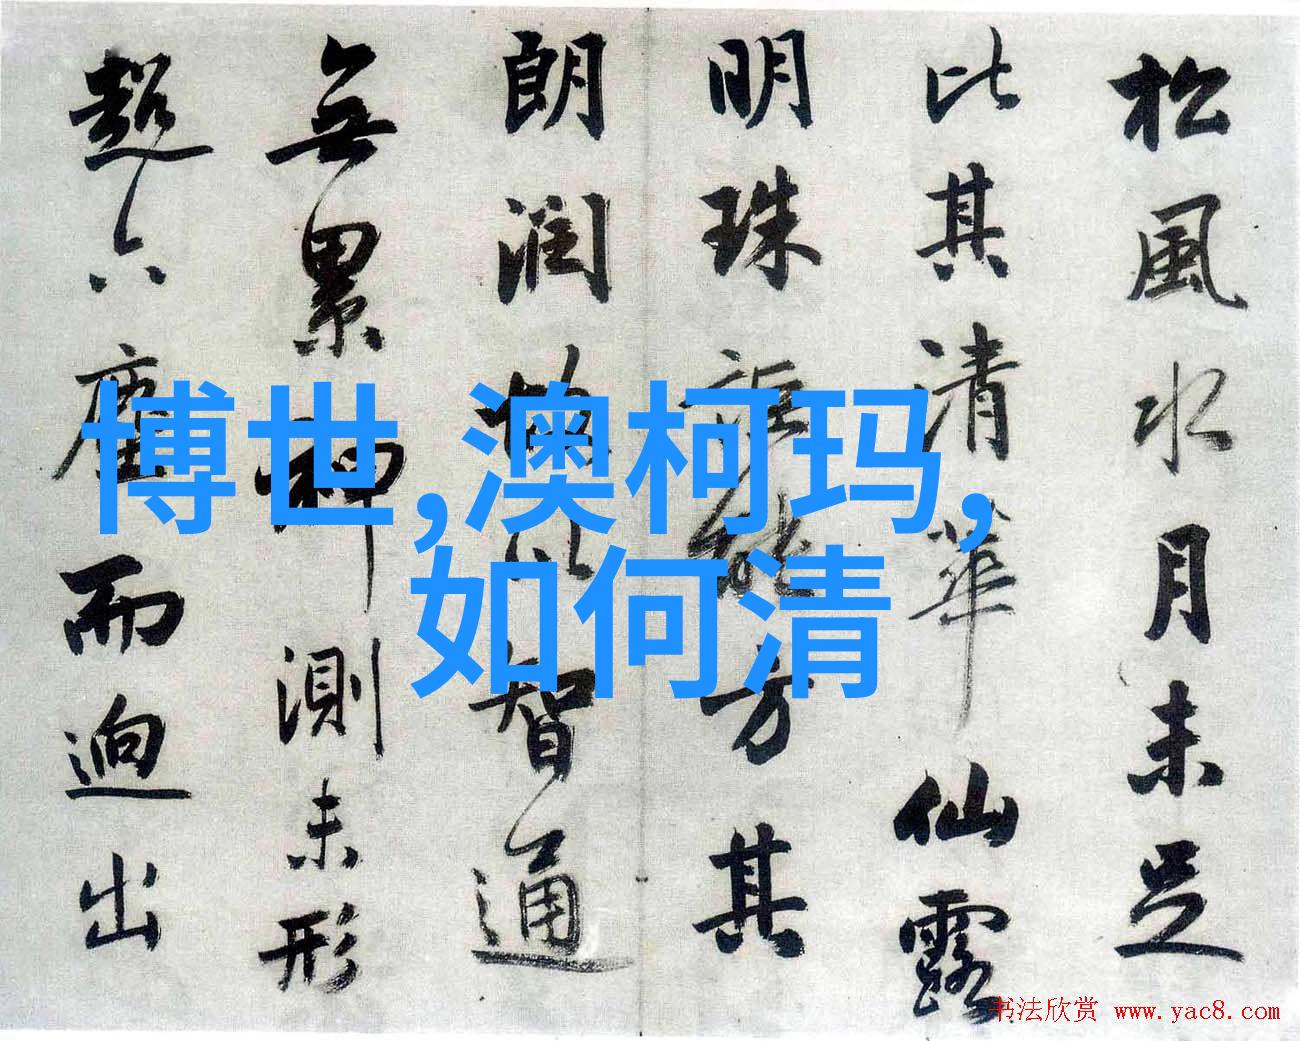 松風水月未足
比其清華仙露
明珠詎能方其
朗潤故以智通
無累神測未形
超六塵而迥出
博世,澳柯玛,
如何清
书法欣赏 www.yac8.com